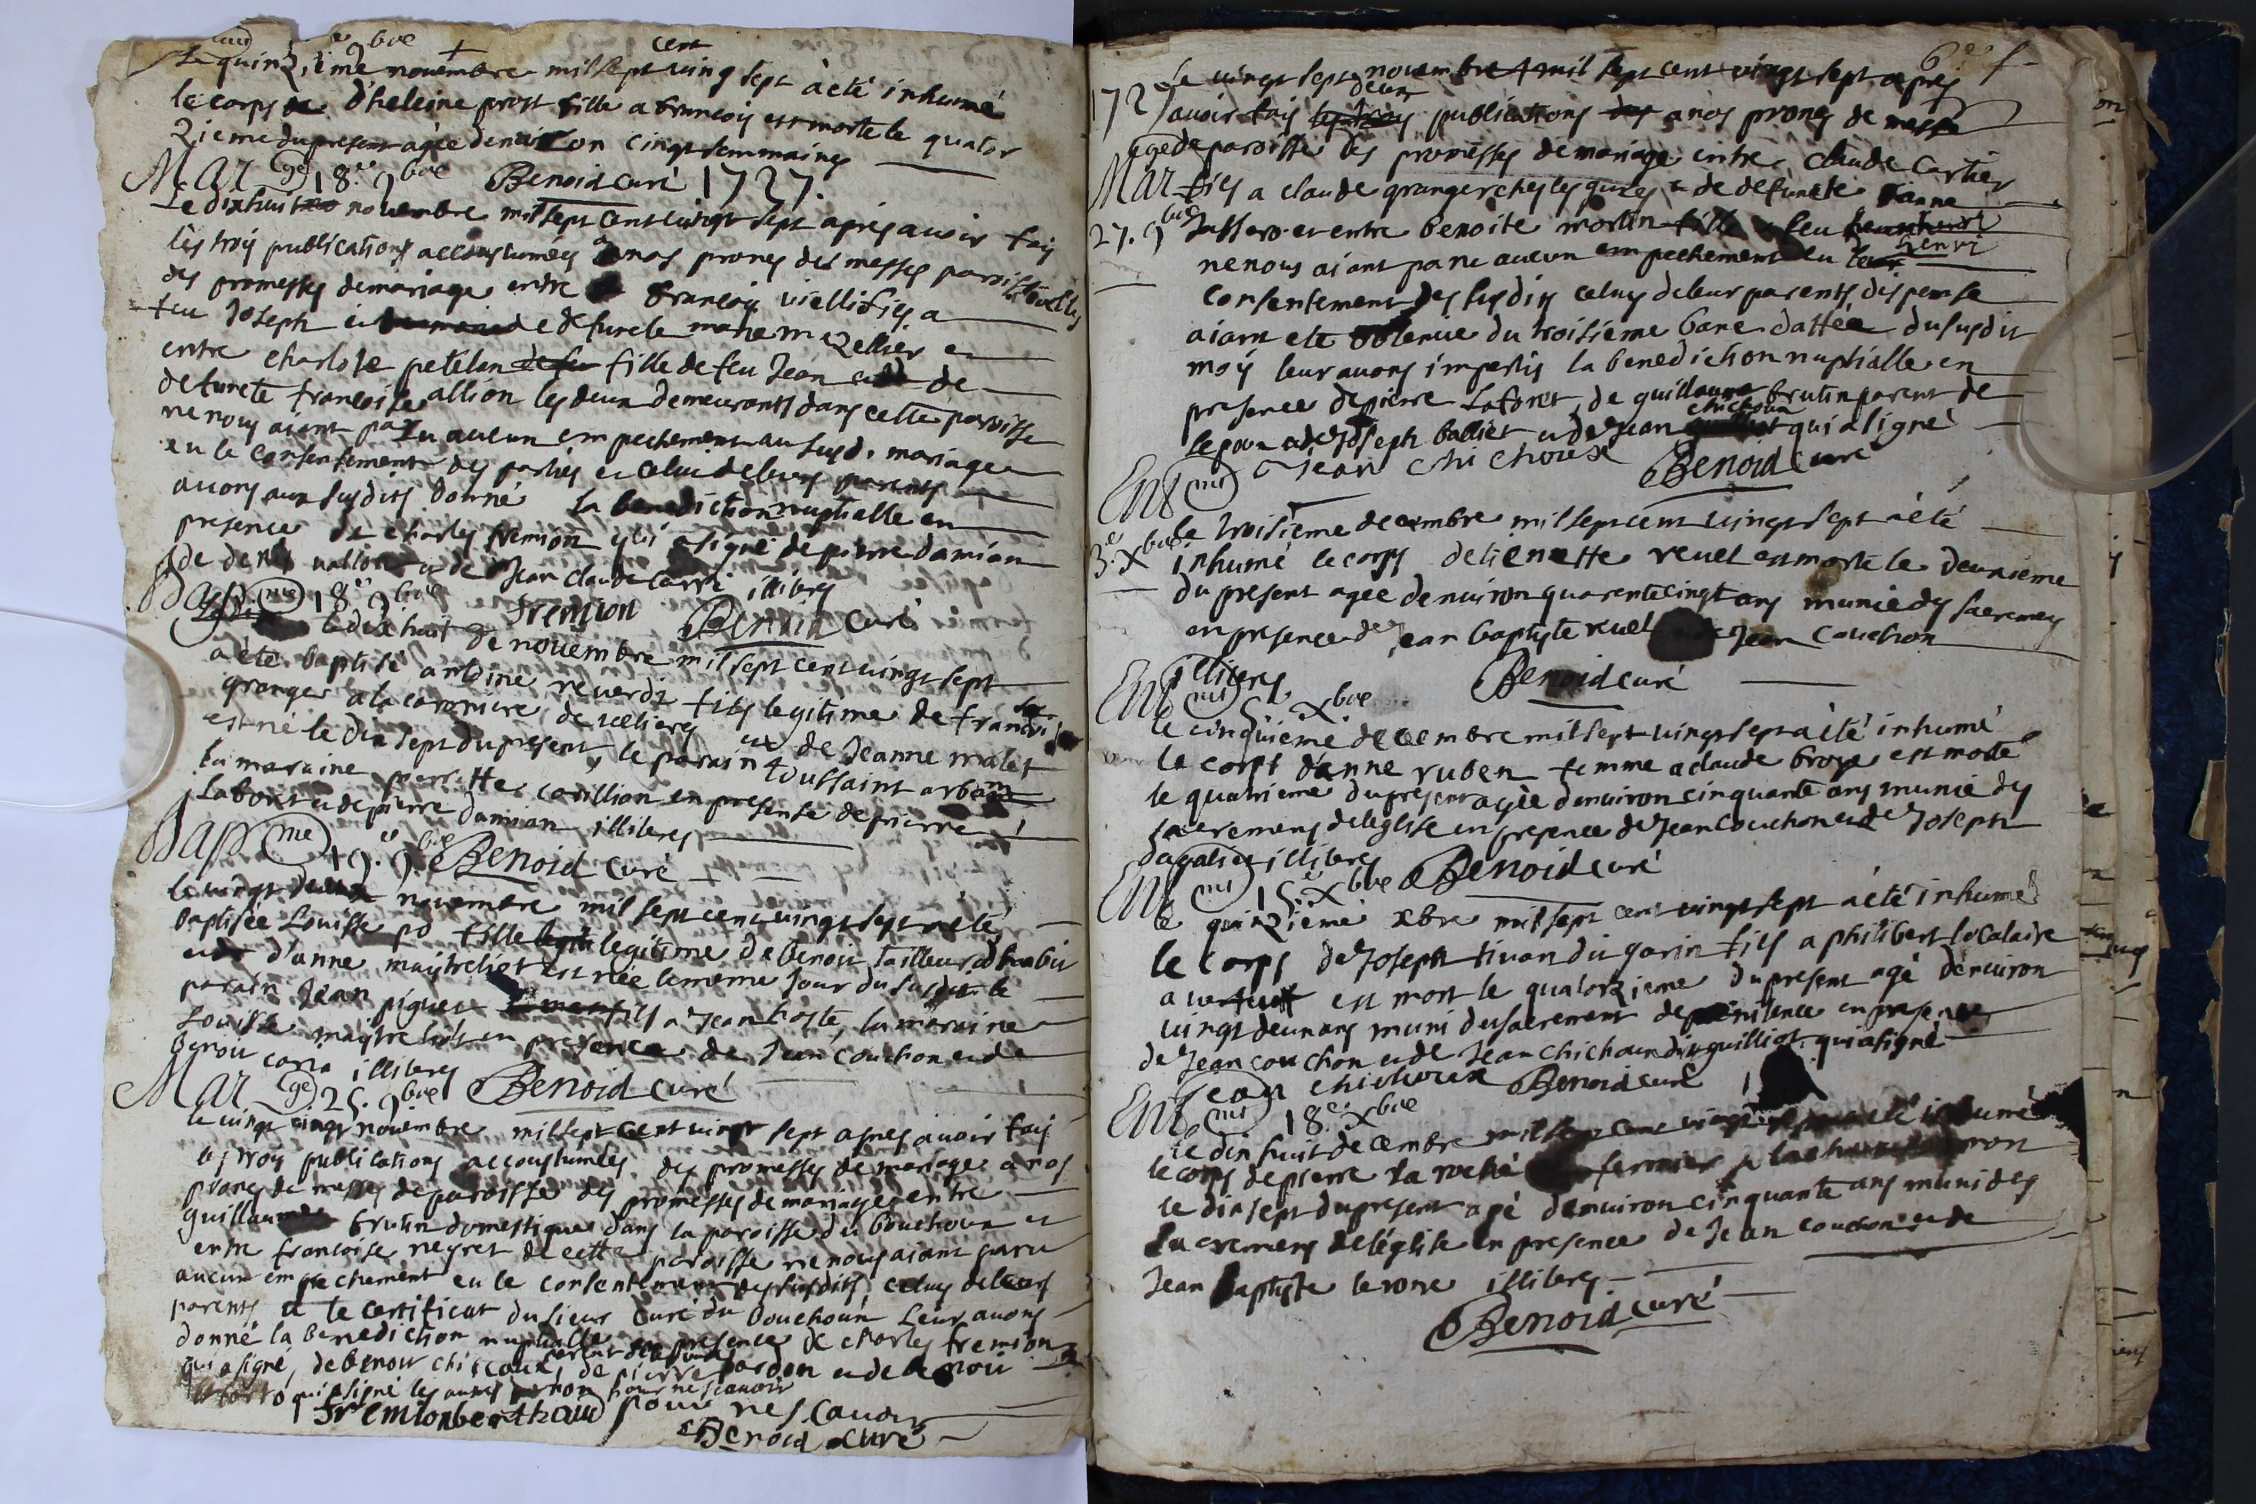 Le quinzième novembre mil sept cent vingt sept à été inhumé
le corps d'heleine prost fille a francois est morte le quator
zieme du present agée denviron cinqt semmaines
Mar ge 18.e 9bre Benoid curé 1727.
Le dixhuit novembre mil sept cent vingt sept apres avoir fais
les trois publications accoustumées a nos prones des messes
des promesses de mariage entre francois vielli fils a
feu Joseph defuncte marie mezellier et
entre charlote petelan fille de feu Jean de
defuncte francoise allion les deux demeurants dans cette paroisse
ne nous aiant paru aucun empechement au susd. mariage
eu le consentement des parties et celui de leurs parents
avons aux susdits donné la benediction nuptialle en
presence de charles fremion qui a signé de pierre damian
de denis nallot et de Jean claude carri illiteres
Bapme 18.e 9bre fremion Benoid curé
le dix huit de novembre mil sept cent vingt sept
a été baptisé antoine reverdi fils legitime de francois
granger a la coronniere de vcelieres et de Jeanne malet
est né le dix sept du present, le parain toussaint arban
la maraine pierrette covillion en presense de pierre
labout et de pierre damian illiteres
Bapme 19.e 9bre Benoid curé
le vingt novembre mil sept cent vingt sept a été
baptisée Louisse po fille legitime de benoit tailleur d'habit
et d'anne maytreliot est née le meme jour du susdit le
parain Jean piguet fils a Jean hoste, la maraine
Louisse maytreliot en presence de Jean couchon et de
benoit carra illiteres
Mar ge 25. 9bre Benoid curé
le vingt cinqt novembre mil sept cent vingt sept apres avoir fais
les trois publications accoustumées des promesses de mariage a nos
prones de messes de paroisse des promesses de mariages entre
guillaume brutin domestique dans la paroisse du bouchoux et
entre francoise negret de cette paroisse ne nous aiant paru
aucun empechement eu le consentement des susdits, celuy de leurs
parents et le certificat du sieur curé du bouchoux Leur avons
donné la benediction nuptialle en presence de charles fremion
qui a signé, de benoit chicoux, de pierre pardon et de benoit
qui a signé les autres non pour ne scavoir
fremion berthaud pour ne scavoir
Benoid curé
6.e f
1727 le vingt sept novembre mil sept cent vingt sept apres
avoir fais deux publications a nos prones de messe
de paroisse des promesses de mariage entre claude cartier
Mar ge fils a claude granger ches les gures et de defuncte anne
27. 9bre Jussero et entre benoite morlin fille a feu henri
ne nous aiant paru aucun empechement eu le
consentement des susdits celuy de leur parents, dispense
aiant eté obtenue du troisieme banc dattée du susdit
mois leur avons impartis la benediction nuptialle en
presence de pierre Laforet, de guillaume brutin parent de
lepoux et de Joseph balliet, et de Jean chichoux qui a signé
Jean chichoux Benoid curé
Ent mt
3.e Xbre le troisieme decembre mil sept cent vingt sept à été
inhumé le corps detienette revel est morte le deuxieme
du present agée denviron quarente cinqt ans munie des sacremens
en presence de Jean baptyte revel Jean couchon
illiteres Benoid curé
Ent mt 5.e Xbre
le cinquieme decembre mil sept vingt sept a été inhumé
le corps d'anne ruben femme a claude broye est morte
le quatrieme du present agée denviron cinquante ans munie des
sacremens de leglise en presence de Jean couchon et de Joseph
dagalier illiteres Benoid curé
Ent mt 15.e Xbre
le quinzieme xbre mil sept cent vingt sept a été inhumé
le corps de Joseph tivan du garin fils a philibert localaire
a est mort le quatorzieme du present agé denviron
vingt deux ans muni du sacrement de penitence en presence
de Jean couchon et de Jean chichoux dit guilliot qui a signé
Jean chichoux Benoid curé
Ent mt 18.e Xbre
le dix huit decembre mil sept cent vingt sept a été inhumé
le corps de pierre la roche fermier a
le dix sept du present agé denviron cinquante ans muni des
sacremens de léglise en presence de Jean couchon et de
Jean Baptyte lerone illiteres
Benoid curé